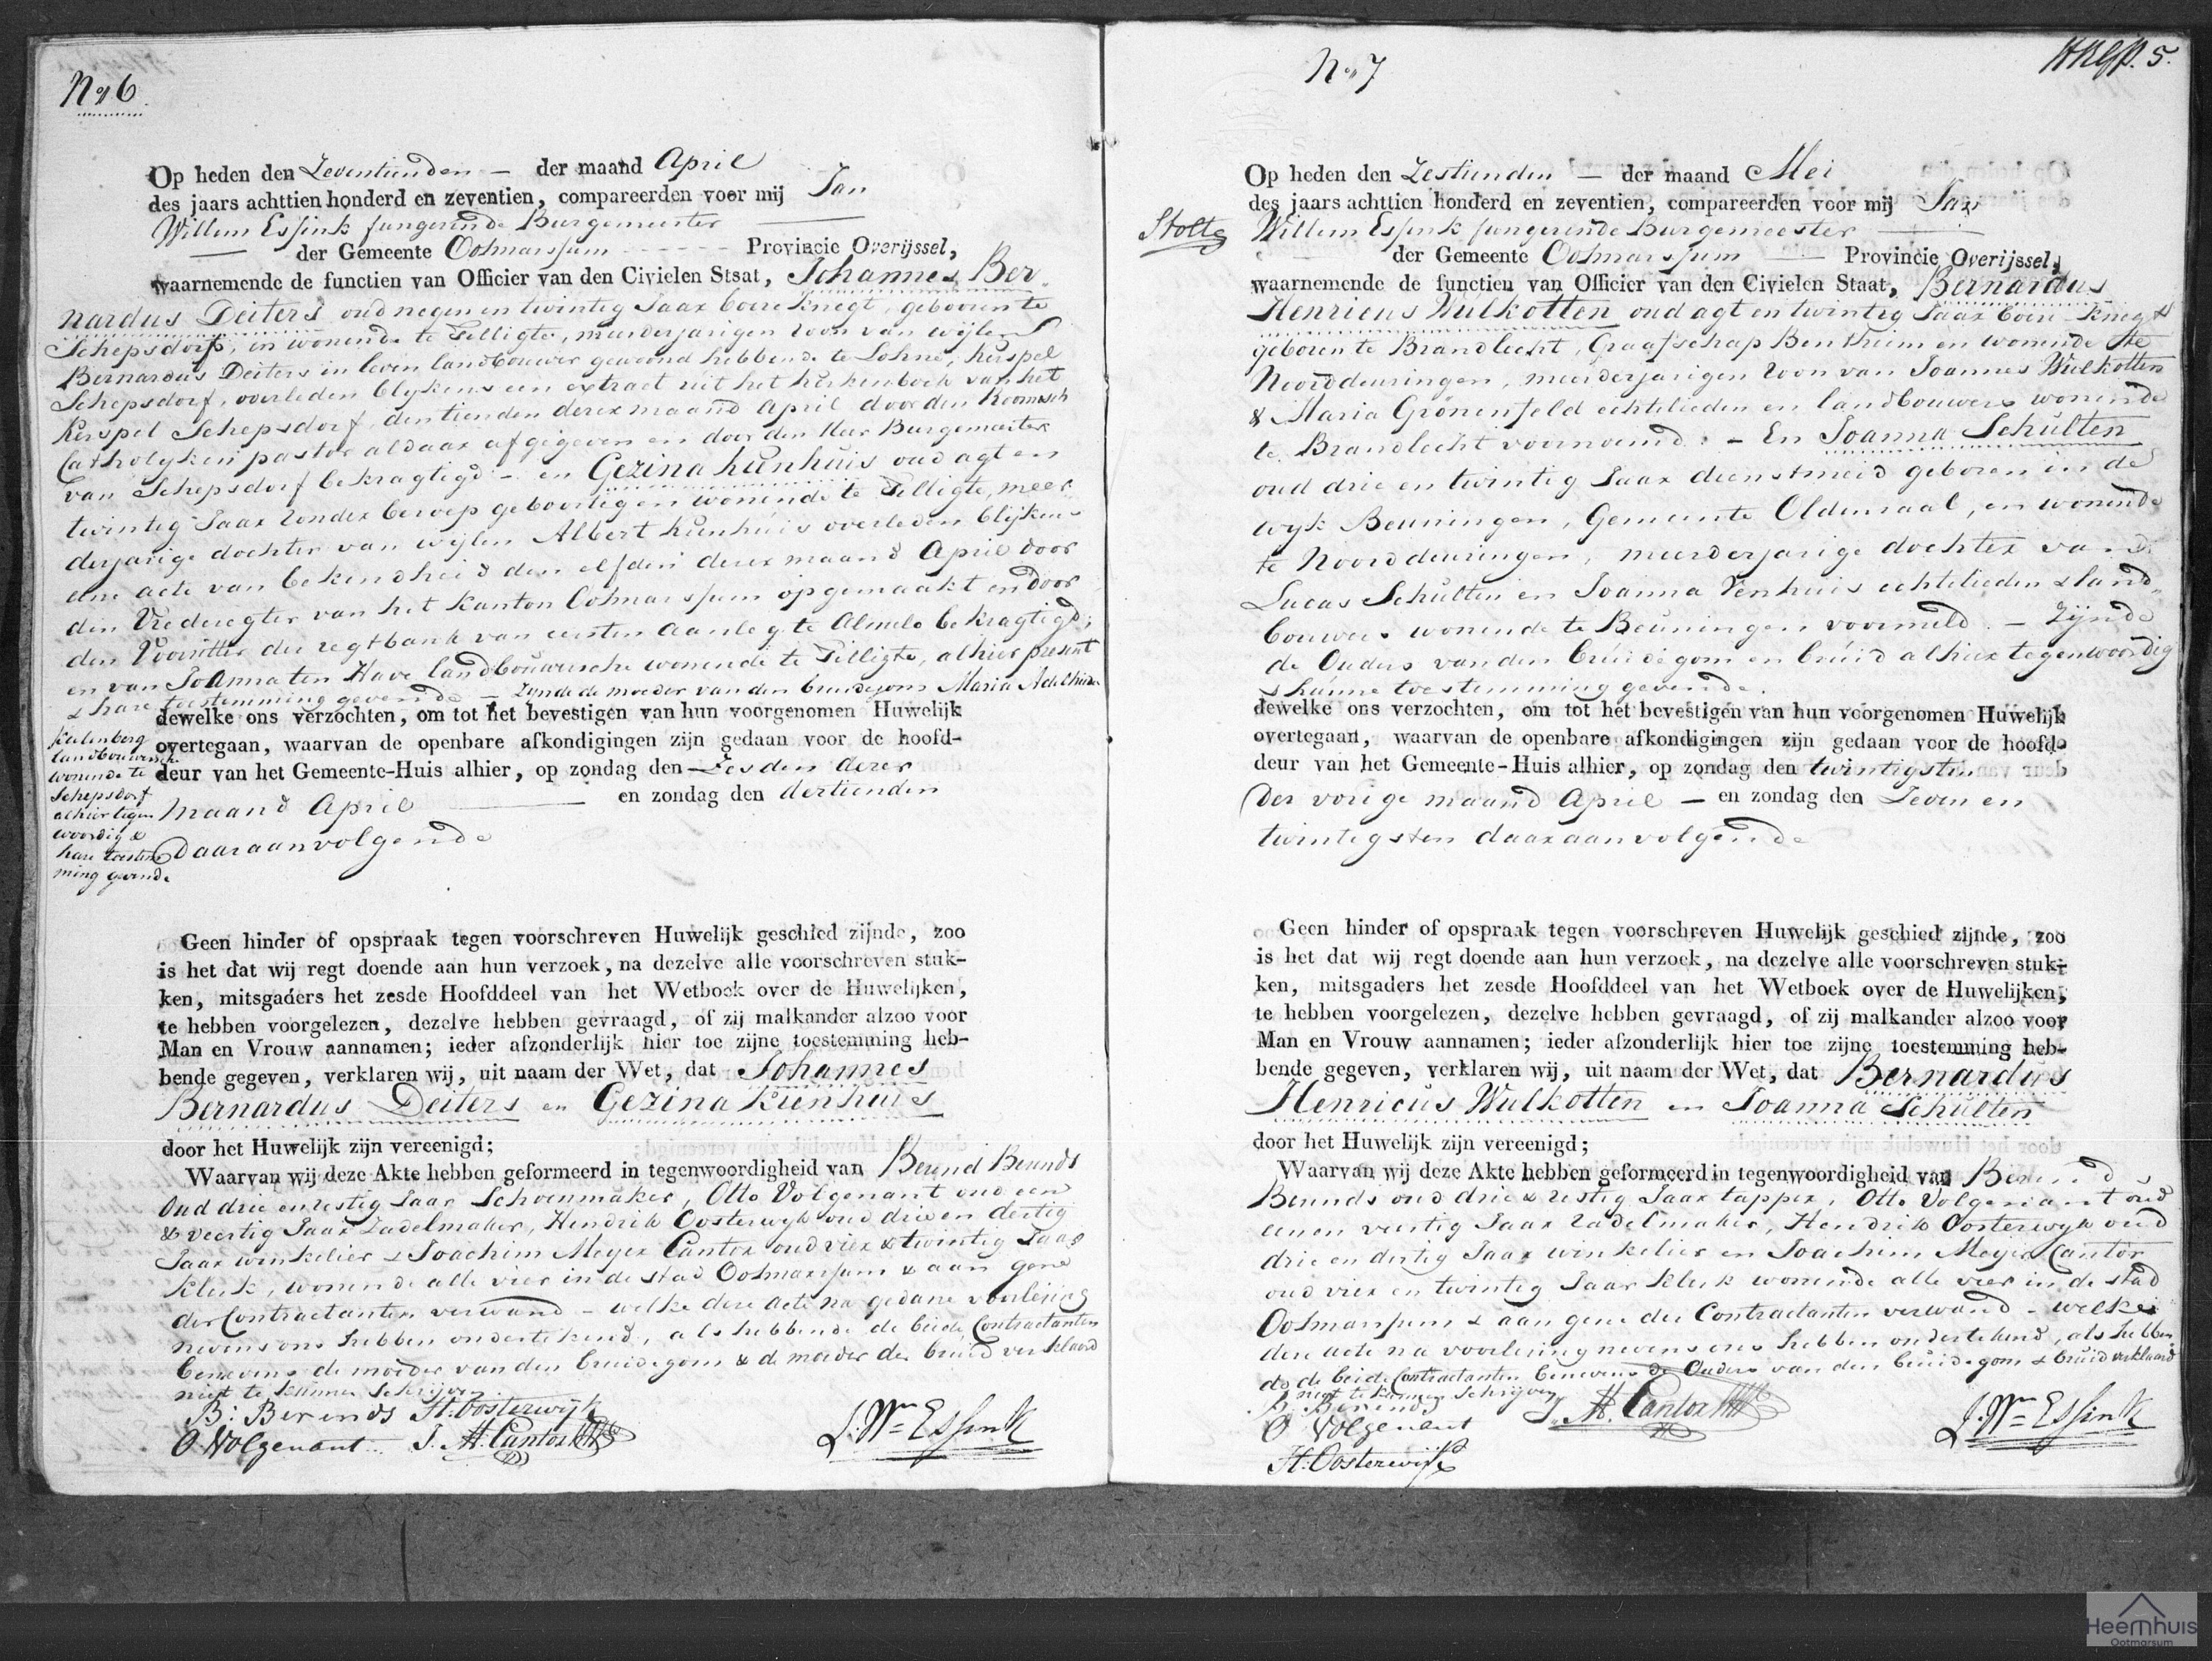 No 6
Op heden den Zeventienden — der maand April
des jaars achttien honderd en zeventien, compareerden voor mij Jan
Willem Essink fungerende Burgemeester
der Gemeente Ootmarssum Provincie Overijssel,
waarnemende de functien van Officier van den Civielen Staat, Johannes Ber-
nardus Deiters oud negen en twintig Jaar boereknegt, geboren te
Schepsdorf, en wonende te Tilligte, meerderjarigen zoon van wijlen
Bernardus Deiters in leven landbouwer gewoond hebbende te Lohne, kerspel
Schepsdorf, overleden blykens een extract uit het kerkenboek van het
Kerspel Schepsdorf, den tienden dezer maand April door den Roomsch
Catholyken pastor aldaar afgegeven en door den Heer Burgemeester
van Schepsdorf bekragtigd - en Gezina kienhuis oud agt en
twintig Jaar zonder beroep geboortig en wonende te Tilligte, meer-
derjarige dochter van wijlen Albert kienhuis overleden blijkens
eene acte van bekendheid den elfden dezer maand April door
den Vrederegter van het Kanton Ootmarssum opgemaakt en door
den Voorzitter der regtbank van eersten Aanleg te Almelo bekragtigd;
en van Joanna ten Have landbouwersche wonende te Tilligte, alhier present
& hare toestemming gevende — zynde de moeder van den bruidegom Maria Adelheid
Kulenberg
landbouwersche
wonende te
Schepsdorf
alhier tegen
woordig &
hare toestem
ming gevende
dewelke ons verzochten, om tot het bevestigen van hun voorgenomen Huwelijk
overtegaan, waarvan de openbare afkondigingen zijn gedaan voor de hoofd-
deur van het Gemeente-Huis alhier, op zondag den Zesden dezer
maand April en zondag den dertienden
daaraanvolgende
Geen hinder of opspraak tegen voorschreven Huwelijk geschied zijnde, zoo
is het dat wij regt doende aan hun verzoek, na dezelve alle voorschreven stuk-
ken, mitsgaders het zesde Hoofddeel van het Wetboek over de Huwelijken,
te hebben voorgelezen, dezelve hebben gevraagd, of zij malkander alzoo voor
Man en Vrouw aannamen; ieder afzonderlijk hier toe zijne toestemming heb-
bende gegeven, verklaren wij, uit naam der Wet, dat Johannes
Bernardus Deiters en Gezina kienhuis
door het Huwelijk zijn vereenigd;
Waarvan wij deze Akte hebben geformeerd in tegenwoordigheid van Berend Berends
oud drie en zestig Jaar Schoenmaker, Otto Volgenant oud een
& veertig Jaar Zadelmaker, Hendrik Oosterwyk oud drie en dertig
Jaar winkelier & Joachim Meyer Cantor oud vier & twintig Jaar
klerk, wonende alle vier in de stad Ootmarssum & aan gene
der Contractanten verwand - welke deze acte na gedane voorlezing
nevens ons hebben ondertekend, als hebbende de beide Contractanten
benevens de moeder van den bruidegom & de moeder der bruid verklaard
niet te kunnen Schrijven
B: Berends H. Oosterwijk
O Volgenant J. M. Cantor
J. Wm Essink
No 7
5.
Stolte
Op heden den Zestienden — der maand Mei
des jaars achttien honderd en zeventien, compareerden voor mij Jan
Willem Essink fungerende Burgemeester
der Gemeente Ootmarssum — Provincie Overijssel,
waarnemende de functien van Officier van den Civielen Staat, Bernardus
Henricus Wulkotten oud agt en twintig Jaar boere knegt
geboren te Brandlecht, Graafschap Bentheim en wonende te
Noorddeuringen, meerderjarigen zoon van Joannes Wulkotten
& Maria Grönenfeld echtelieden en landbouwers wonende
te Brandlecht voornoemd: - En Joanna Schulten
oud drie en twintig Jaar dienstmeid geboren in de
wyk Beuningen, Gemeente Oldensaal, en wonende
te Noorddeuringen, meerderjarige dochter van
Lucas Schulten en Joanna Venhuis echtelieden & land-
bouwers wonende te Beuningen voormeld. - Zijnde
de Ouders van den bruidegom en bruid alhier tegenwoordig
& hunne toestemming gevende.
dewelke ons verzochten, om tot het bevestigen van hun voorgenomen Huwelijk
overtegaan, waarvan de openbare afkondigingen zijn gedaan voor de hoofd-
deur van het Gemeente-Huis alhier, op zondag den twintigsten
der vorige maand April — en zondag den Zeven en
twintigsten daaraanvolgende
Geen hinder of opspraak tegen voorschreven Huwelijk geschied zijnde, zoo
is het dat wij regt doende aan hun verzoek, na dezelve alle voorschreven stuk-
ken, mitsgaders het zesde Hoofddeel van het Wetboek over de Huwelijken,
te hebben voorgelezen, dezelve hebben gevraagd, of zij malkander alzoo voor
Man en Vrouw aannamen; ieder afzonderlijk hier toe zijne toestemming heb-
bende gegeven, verklaren wij, uit naam der Wet, dat Bernardus
Henricus Wulkotten en Joanna Schulten
door het Huwelijk zijn vereenigd;
Waarvan wij deze Akte hebben geformeerd in tegenwoordigheid van Berend
Berends oud drie & zestig Jaar tapper, Otto Volgenant oud
een en veertig Jaar zadelmaker, Hendrik Oosterwyk oud
drie en dertig Jaar winkelier en Joachim Meyer Cantor
oud vier en twintig Jaar klerk wonende alle vier in de stad
Ootmarssum & aan gene der Contractanten verwand - welke
deze acte na voorlezing nevens ons hebben ondertekend, als hebben
de de beide Contractanten benevens de Ouders van den bruidegom & bruid verklaard
niet te kunnen Schrijven
B. Berends J. M. Cantor
O Volgenant
H. Oosterwijk
J. Wm Essink
Heemhuis
Ootmarsum